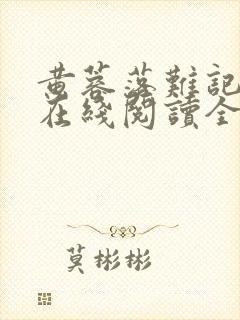 黄蓉落難記
在綫閱讀全
莫彬彬